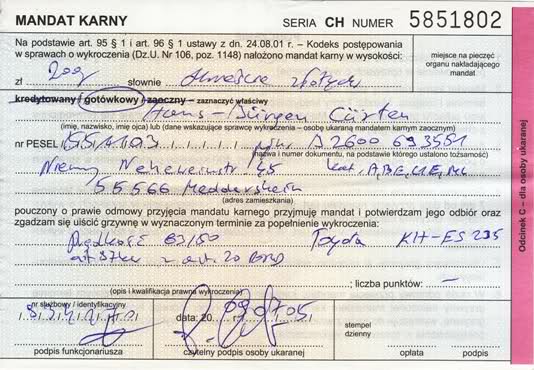 MANDAT KARNY SERIA CH NUMER 5851802
Na podstawie art. 95 § 1 i art. 96 § 1 ustawy z dn. 24.08.01 r. – Kodeks postępowania
w sprawach o wykroczenia (Dz.U. Nr 106, poz. 1148) nałożono mandat karny w wysokości:
miejsce na pieczęć
organu nakładającego
mandat
zł 200 słownie dwieście złotych
kredytowany / gotówkowy / zaoczny – zaznaczyć właściwy
Hans-Jürgen Cürten
(imię, nazwisko, imię ojca) lub (dane wskazujące sprawcę wykroczenia – osobę ukaraną mandatem karnym zaocznym)
nr PESEL
(nazwa i numer dokumentu, na podstawie którego ustalono tożsamość)
Niemcy 45
55566 Meddersheim
(adres zamieszkania)
pouczony o prawie odmowy przyjęcia mandatu karnego przyjmuję mandat i potwierdzam jego odbiór oraz
zgadzam się uiścić grzywnę w wyznaczonym terminie za popełnienie wykroczenia:
Prędkość 83/50 Toyota KH-ES 235
z art. 20 PRD
(opis i kwalifikacja prawna wykroczenia) ; liczba punktów: —
nr służbowy / identyfikacyjny
data: 20
podpis funkcjonariusza
czytelny podpis osoby ukaranej
stempel
dzienny
opłata podpis
Odcinek C – dla osoby ukaranej